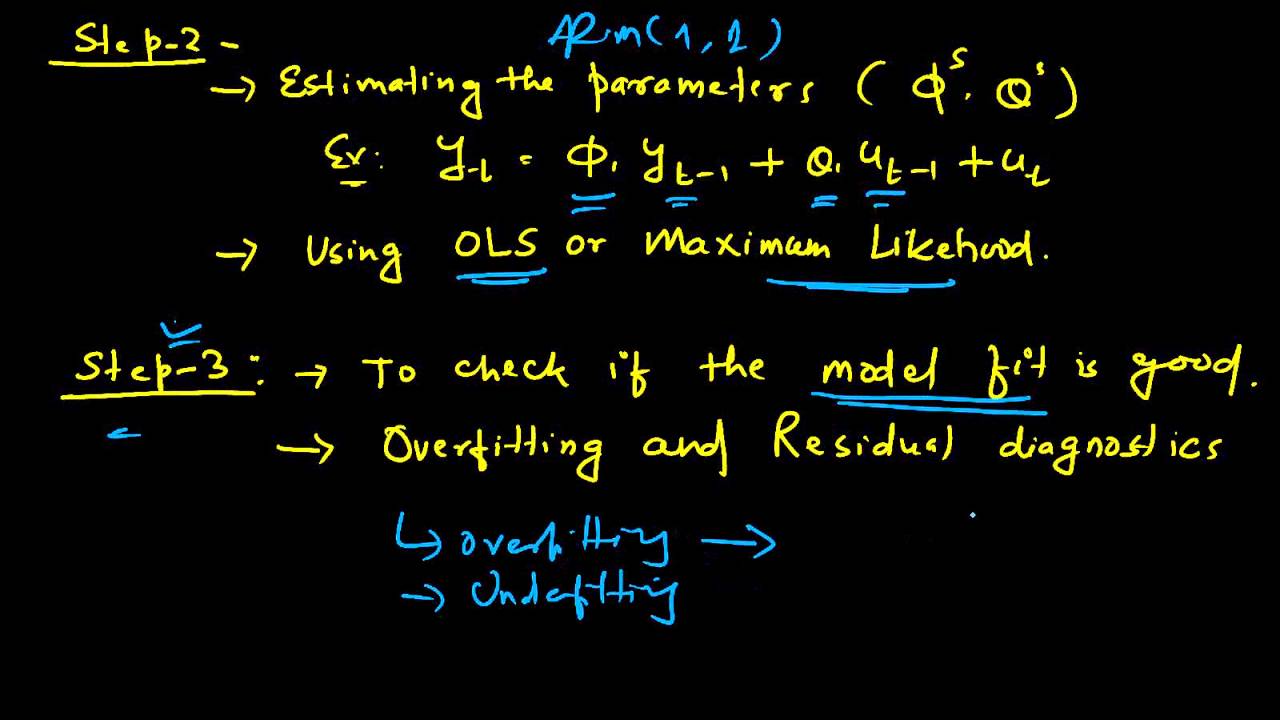 ARm(1,1)
Step-2 -
→ Estimating the parameters ( Φ^s, Θ^s )
Ex: y_t = Φ₁ y_{t-1} + Θ₁ u_{t-1} + u_t
→ Using OLS or Maximum Likehood.
Step-3: → To check if the model fit is good.
→ Overfitting and Residual diagnostics
↳ overfitting →
→ Undefitting